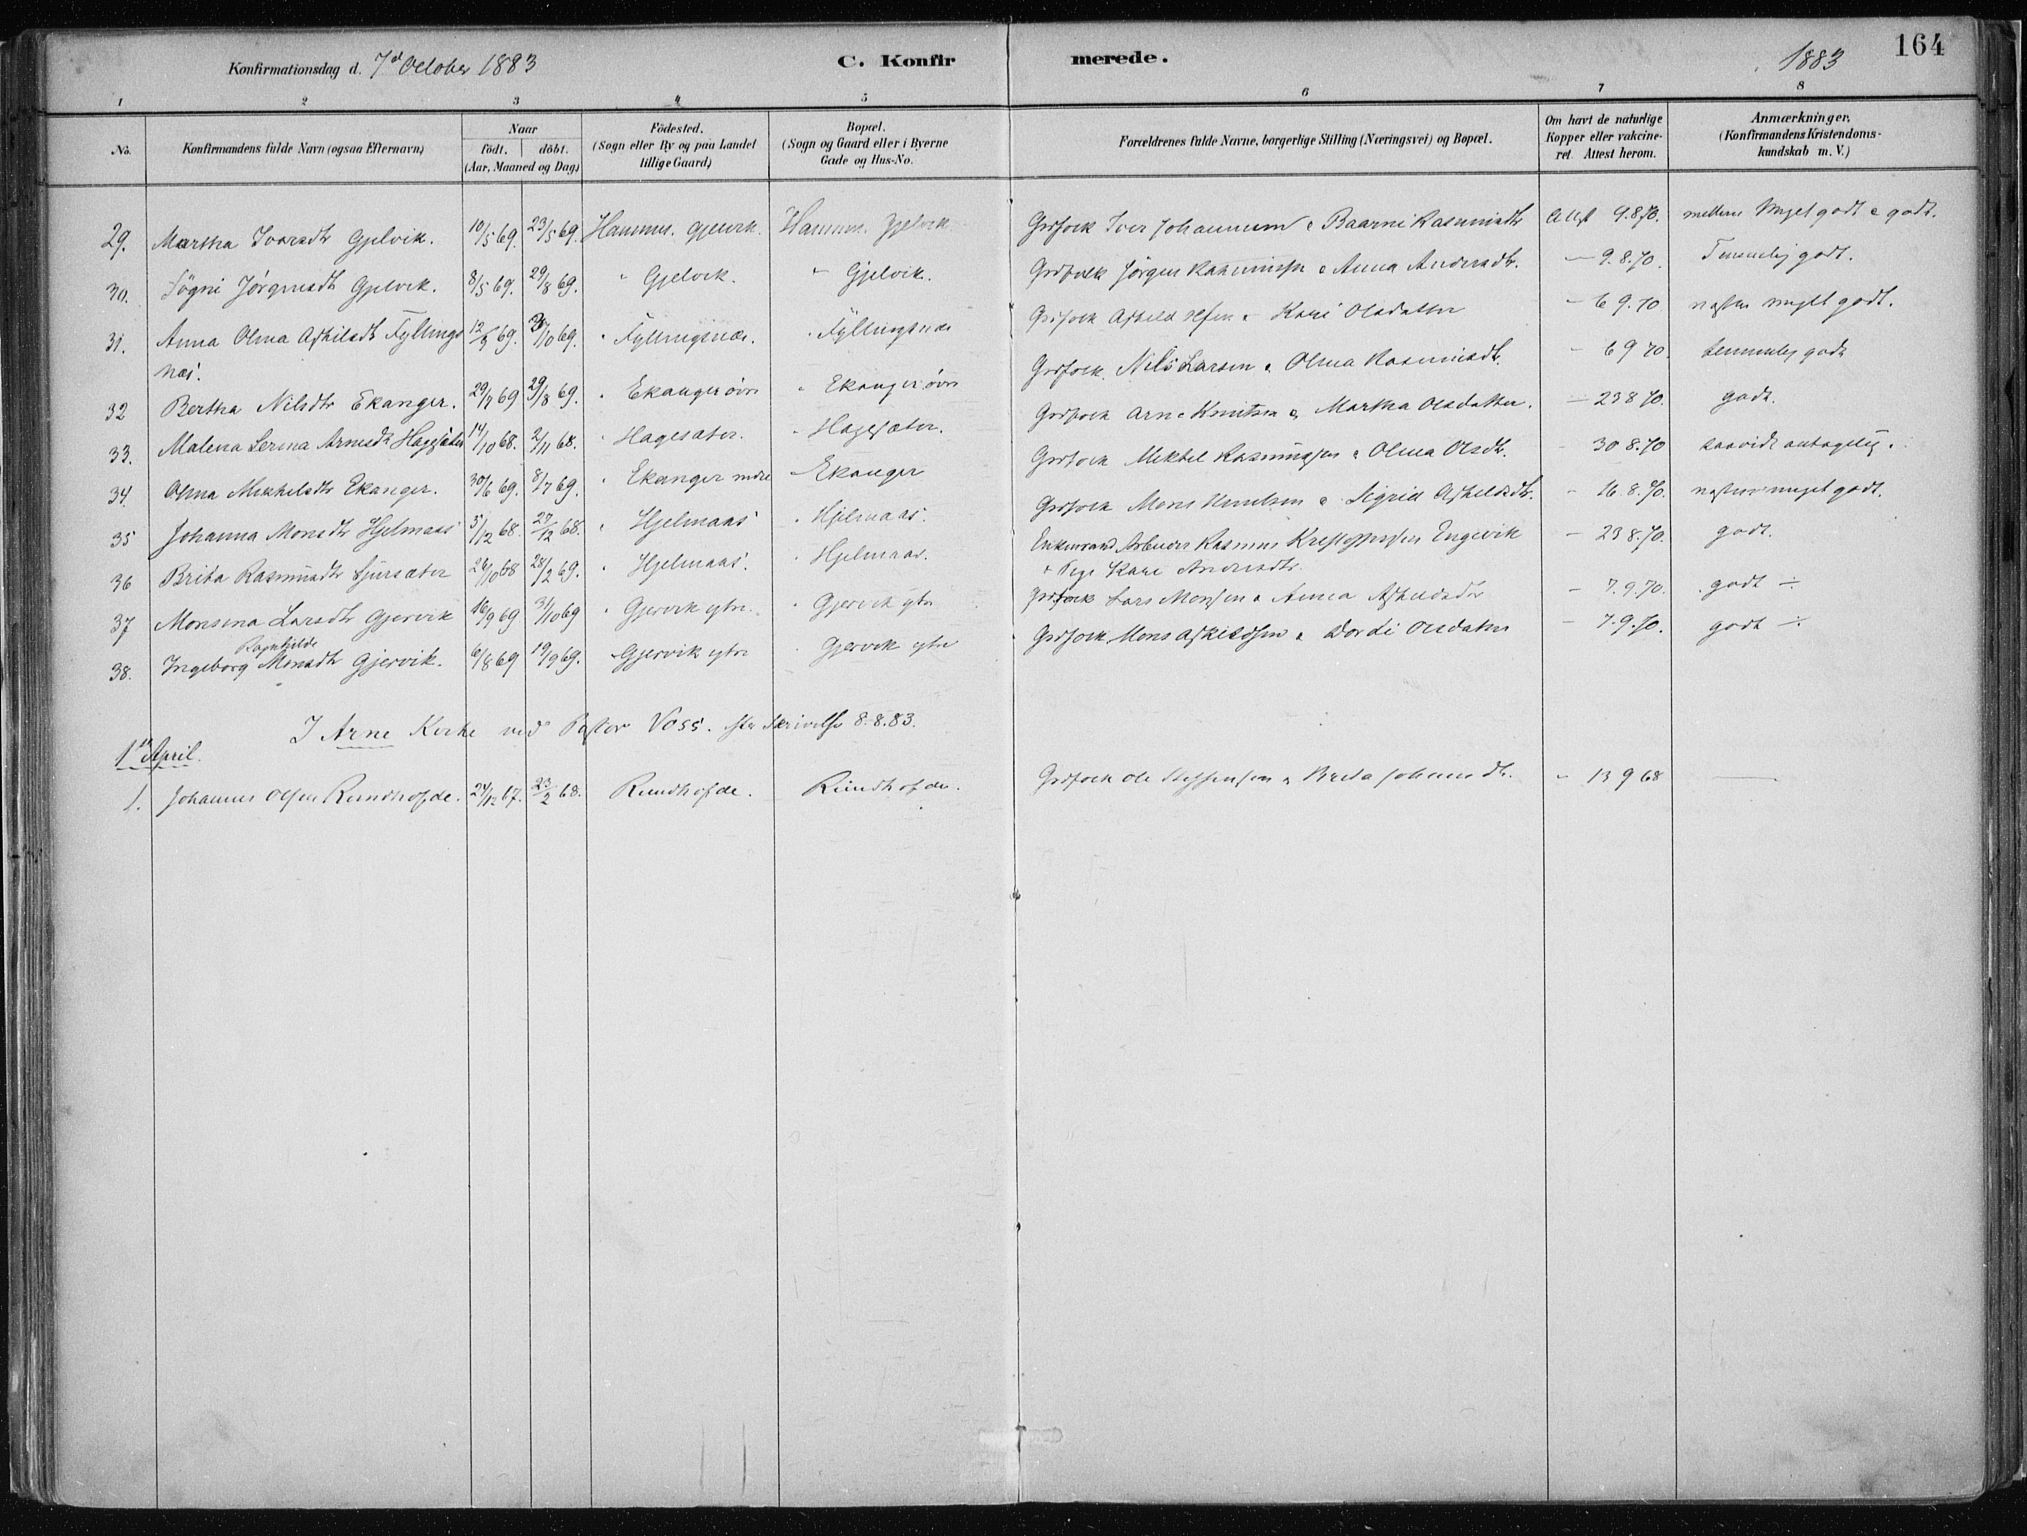 164
Konfirmationsdag d. 7d October 1883 C. Konfirmerede. 1883
1 2 3 4 5 6 7 8
No. Konfirmandens fulde Navn (ogsaa Efternavn) Naar født. døbt. (Aar, Maaned og Dag) Fødested. (Sogn eller By og paa Landet tillige Gaard) Bopæl. (Sogn og Gaard eller i Byerne Gade og Hus-No. Forældrenes fulde Navne, borgerlige Stilling (Næringsvei) og Bopæl. Om havt de naturlige Kopper eller vakcineret. Attest herom. Anmærkninger. (Konfirmandens Kristendomskundskab m. V.)
29. Martha Ivarsdtr Gjelvik. 10/5 69. 23/5 69. Hammer. Gjelvik. Hammer. Gjelvik Grdfolk Iver Johannesen & Rasmusdtr Attest 9.8.70. mellem meget godt & godt.
30. Søgni Jørgensdt Gjelvik. 8/5 69. 29/8 69. " Gjelvik. " Gjelvik. Grdfolk Jørgen Rasmussen & Anna Andersdtr. — 9.8.70. Temmelig godt.
31. Anna Olina Askilsdt Fyllings 69. /10 69. " Fyllingsnæs. " Fyllingsnæs Grdfolk Askild Olsen & Kari Olsdatter — 6 9.70 næsten meget godt.
næs.
32 Bertha Nilsdtr Ekanger. 29/7 69 29/8 69. " Ekanger øvre " Ekanger øvre Grdfolk Nils Larsen & Olina Rasmusdtr. — 6 9 70. temmelig godt
33. Malena Serina Arnesdt Hagesæter 14/10 68. 2/11 68. " Hagesæter. " Hagesæter. Grdfolk Arne Knutsen & Martha Olsdatter. — 23 8 70. godt.
34. Olina Mikkelsdtr Ekanger. 30/6 69. 8/7 69. " Ekanger nedre " Ekanger Grdfolk Mikkel Rasmussen & Olina Olsdtr. — 30 8.70 saavidt antagelig.
35 Johanna Monsdtr Hjelmaas 5/12 68. 27/12 68. " Hjelmaas " Hjelmaas. Grdfolk Mons Knutsen & Sigrid Askildsdtr. — 16.8.70. næsten meget godt.
36 Brita Rasmusdtr Sjursæter 26/10 68 28/2 69. " Hjelmaas. " Hjelmaas. Enkemand Arbeider Rasmus Engevik — 23 8.70. godt.
& Pige Kari Andersdtr.
37 Monsina Larsdtr Gjervik 16/9 69 31/10 69 " Gjervik ytre. " Gjervik ytre Grdfolk Lars Monsen & Anna Askildsdtr — 7.9.70. godt ÷
38. Ingeborg Ragnhilde Monsdtr Gjervik. 6/8 69 19/9 69. " Gjervik ytre " Gjervik ytre Grdfolk Mons Askildsen & Dordi Olsdatter — 7.9.70. godt ÷
I Arne Kirke ved Pastor Voss. Skrivelse 8.8.83.
1ste April.
1. Johannes Olsen Rundhofde. 24/12 67. 23/2 68. Rundhofde. Rundhofde. Grdfolk Ole Steffensen & Brita Johannesdtr. " 13 9 68 —